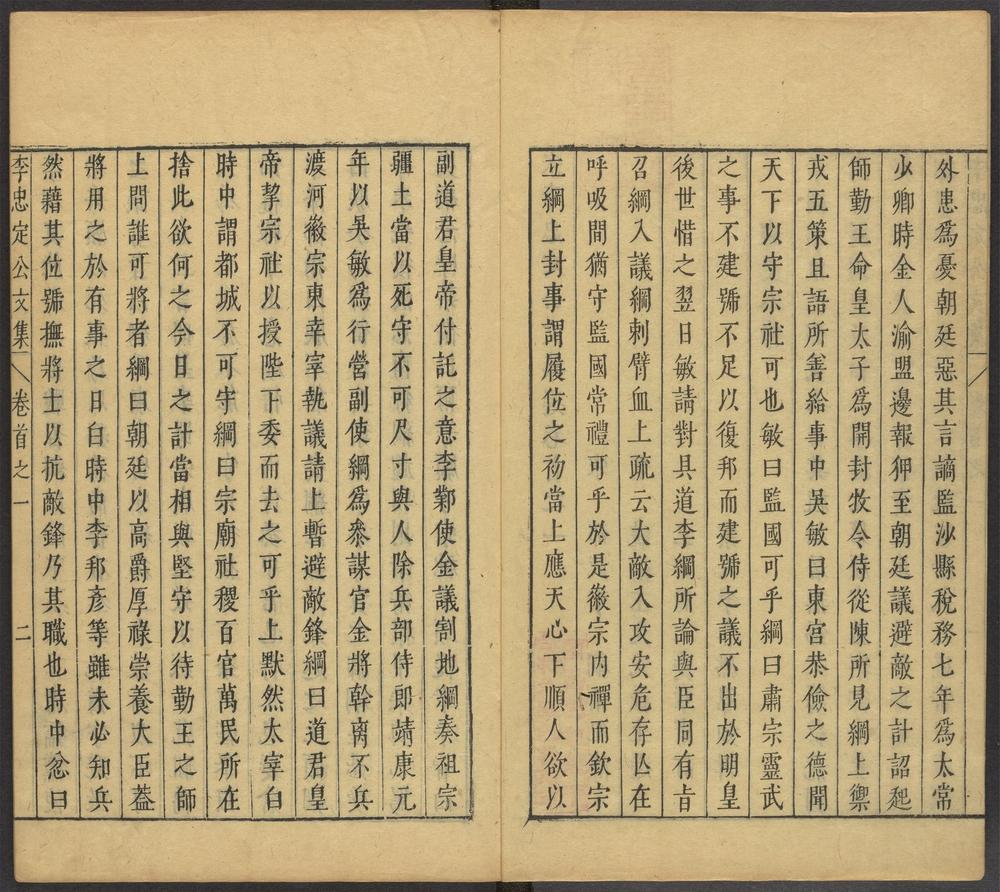 外患爲憂朝廷惡其言謫監沙縣稅務七年爲太常
少卿時金人渝盟邊報狎至朝廷議避敵之計詔起
師勤王命皇太子爲開封牧令侍從陳所見綱上禦
戎五策且語所善給事中吳敏曰東宮恭儉之德聞
天下以守宗社可也敏曰監國可乎綱曰肅宗靈武
之事不建號不足以復邦而建號之議不出於明皇
後世惜之翌日敏請對具道李綱所論與臣同有旨
召綱入議綱刺臂血上疏云大敵入攻安危存亾在
呼吸間猶守監國常禮可乎於是徽宗内禪而欽宗
立綱上封事謂履位之初當上應天心下順人欲以
副道君皇帝付託之意李鄴使金議割地綱奏祖宗
疆土當以死守不可尺寸與人除兵部侍郎靖康元
年以吳敏爲行營副使綱爲叅謀官金將幹离不兵
渡河徽宗東幸宰執議請上暫避敵鋒綱曰道君皇
帝挈宗社以授陛下委而去之可乎上默然太宰白
時中謂都城不可守綱曰宗廟社稷百官萬民所在
捨此欲何之今日之計當相與堅守以待勤王之師
上問誰可將者綱曰朝廷以高爵厚祿崇養大臣葢
將用之於有事之日白時中李邦彥等雖未必知兵
然藉其位號撫將士以抗敵鋒乃其職也時中忿曰
李忠定公文集 卷首之一 二